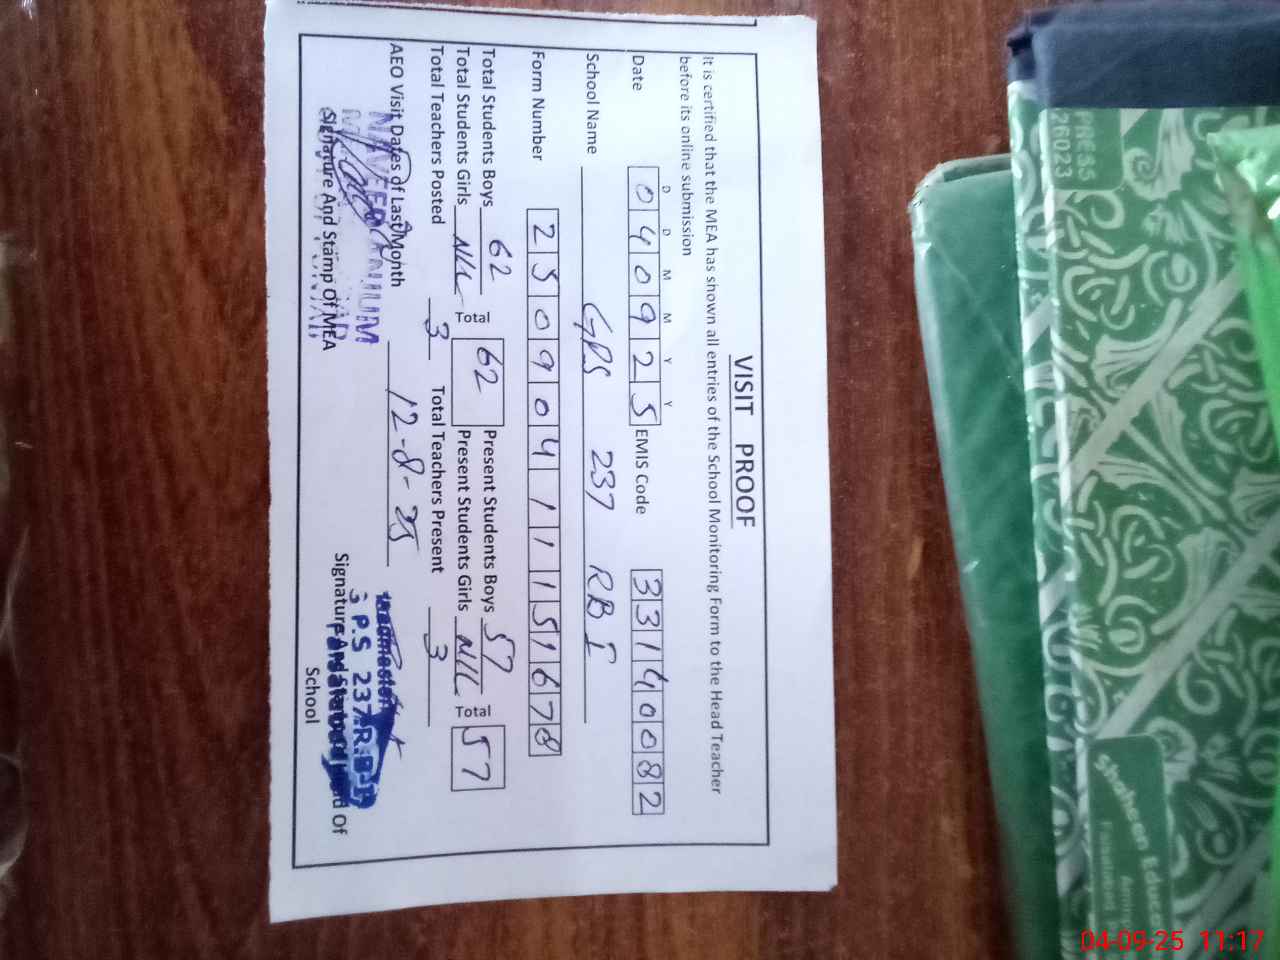 VISIT PROOF
It is certified that the MEA has shown all entries of the School Monitoring Form to the Head Teacher
before its online submission
D D M M Y Y
Date 040925 EMIS Code 33140082
School Name GPS 237 RB I
Form Number 25090411151678
Total Students Boys 62 Total 62 Present Students Boys 57 Total 57
Total Students Girls NIL Present Students Girls NIL
Total Teachers Posted 3 Total Teachers Present 3
AEO Visit Dates of Last Month 12-8-25
Signature And Stamp Of MEA
Headmaster
P.S 237 R.B
Signature And Stamp Of
School
PRESS
26023
Shaheen Educa
04-09-25 11:17